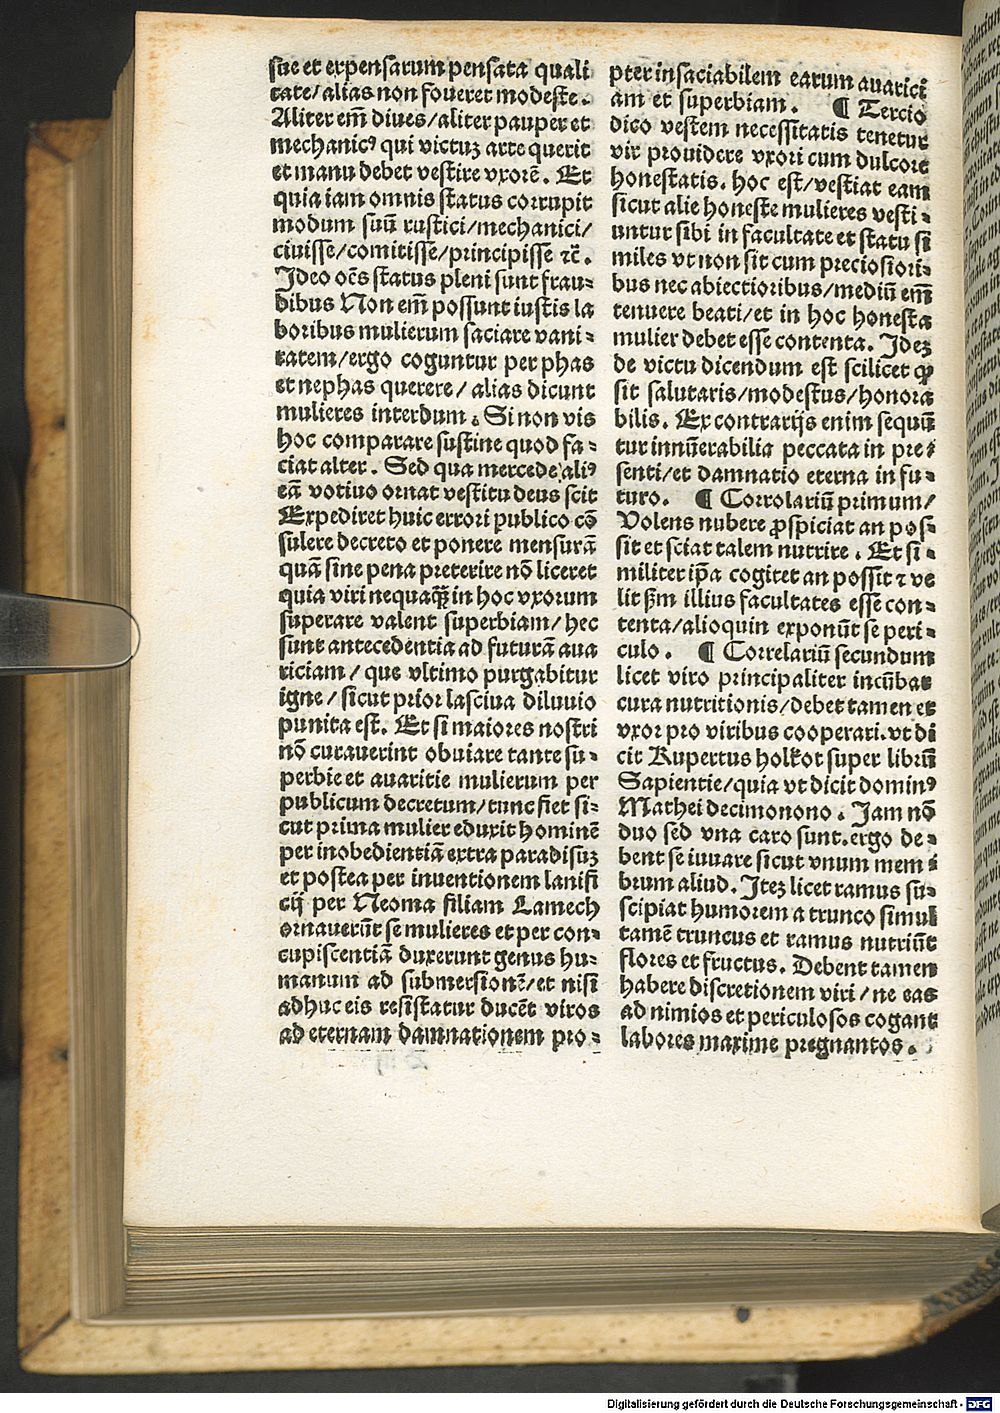 sue et expensarum pensata quali
tate/alias non foueret modeste.
Aliter em̄ diues/aliter pauper et
mechanicꝰ qui victuꝫ arte querit
et manu debet vestire vxorē. Et
quia iam omnis status corrupit
modum suū rustici/mechanici/
ciuisse/comitisse/principisse ⁊c̄.
Ideo oēs status pleni sunt frau-
dibus Non em̄ possunt iustis la
boribus mulierum saciare vani-
tatem/ergo coguntur per phas
et nephas querere/ alias dicunt
mulieres interdum. Si non vis
hoc comparare sustine quod fa-
ciat alter. Sed qua mercede aliꝰ
eā votiuo ornat vestitu deus scit
Expediret huic errori publico cō
sulere decreto et ponere mensurā
quā sine pena preterire nō liceret
quia viri nequaqꝫ̄ in hoc vxorum
superare valent superbiam/ hec
sunt antecedentia ad futurā aua
riciam/ que vltimo purgabitur
igne/ sicut prior lasciua diluuio
punita est. Et si maiores nostri
nō curauerint obuiare tante su-
perbie et auaritie mulierum per
publicum decretum/tunc fiet si-
cut prima mulier eduxit hominē
per inobedientiā extra paradisuꝫ
et postea per inuentionem lanifi
cij per Neoma filiam Lamech
ornauerūt se mulieres et per con-
cupiscentiā duxerunt genus hu-
manum ad submersionē/et nisi
adhuc eis resistatur ducēt viros
ad eternam damnationem pro-
pter insaciabilem earum auarici
am et superbiam. ¶ Tercio
dico vestem necessitatis tenetur
vir prouidere vxori cum dulcore
honestatis. hoc est/vestiat eam
sicut alie honeste mulieres vesti-
untur sibi in facultate et statu si
miles vt non sit cum preciosiori-
bus nec abiectioribus/mediū em̄
tenuere beati/et in hoc honesta
mulier debet esse contenta. Ideꝫ
de victu dicendum est scilicet ꝙ
sit salutaris/modestus/honora
bilis. Ex contrarijs enim sequū
tur innūerabilia peccata in pre-
senti/et damnatio eterna in fu-
turo. ¶ Corrolariū primum/
Volens nubere ꝓspiciat an pos-
sit et sciat talem nutrire. Et si-
militer ip̄a cogitet an possit ⁊ ve
lit ẜm illius facultates esse con-
tenta/alioquin exponūt se peri-
culo. ¶ Correlariū secundum
licet viro principaliter incūbat
cura nutritionis/debet tamen et
vxor pro viribus cooperari. vt di
cit Rupertus holkot super librū
Sapientie/quia vt dicit dominꝰ
Mathei decimonono. Iam nō
duo sed vna caro sunt. ergo de-
bent se iuuare sicut vnum mem-
brum aliud. Iteꝫ licet ramus su-
scipiat humorem a trunco simul
tamē truncus et ramus nutriūt
flores et fructus. Debent tamen
habere discretionem viri/ne eas
ad nimios et periculosos cogant
labores maxime pregnantos.
Digitalisierung gefördert durch die Deutsche Forschungsgemeinschaft - DFG